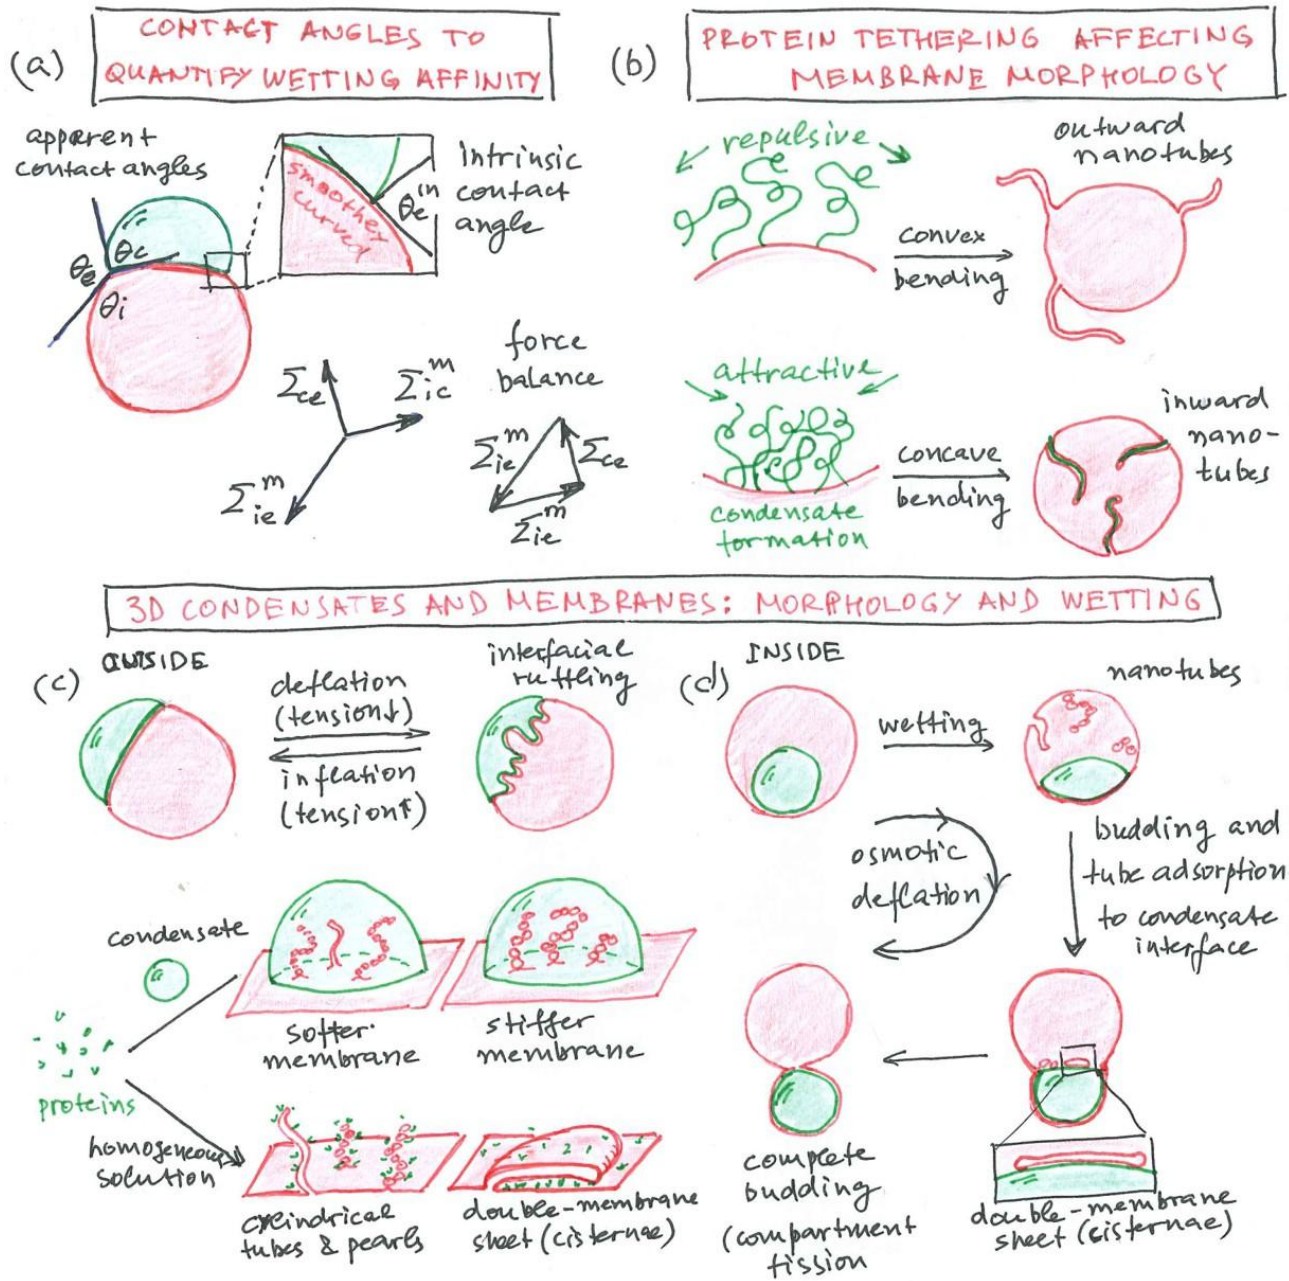 (a)
CONTACT ANGLES TO
QUANTIFY WETTING AFFINITY
apparent
contact angles
θc
θe
θi
smoothly
curved
θe^in
Intrinsic
contact
angle
force
balance
Σce
Σic^m
Σie^m
Σie^m
Σce
Σie^m
(b)
PROTEIN TETHERING AFFECTING
MEMBRANE MORPHOLOGY
repulsive
convex
bending
outward
nanotubes
attractive
condensate
formation
concave
bending
inward
nano-
tubes
3D CONDENSATES AND MEMBRANES: MORPHOLOGY AND WETTING
(c)
OUTSIDE
deflation
(tension↓)
inflation
(tension↑)
interfacial
ruffling
condensate
proteins
softer
membrane
stiffer
membrane
homogeneous
solution
cylindrical
tubes & pearls
double-membrane
sheet (cisternae)
(d)
INSIDE
wetting
nanotubes
osmotic
deflation
budding and
tube adsorption
to condensate
interface
complete
budding
(compartment
fission
double-membrane
sheet (cisternae)